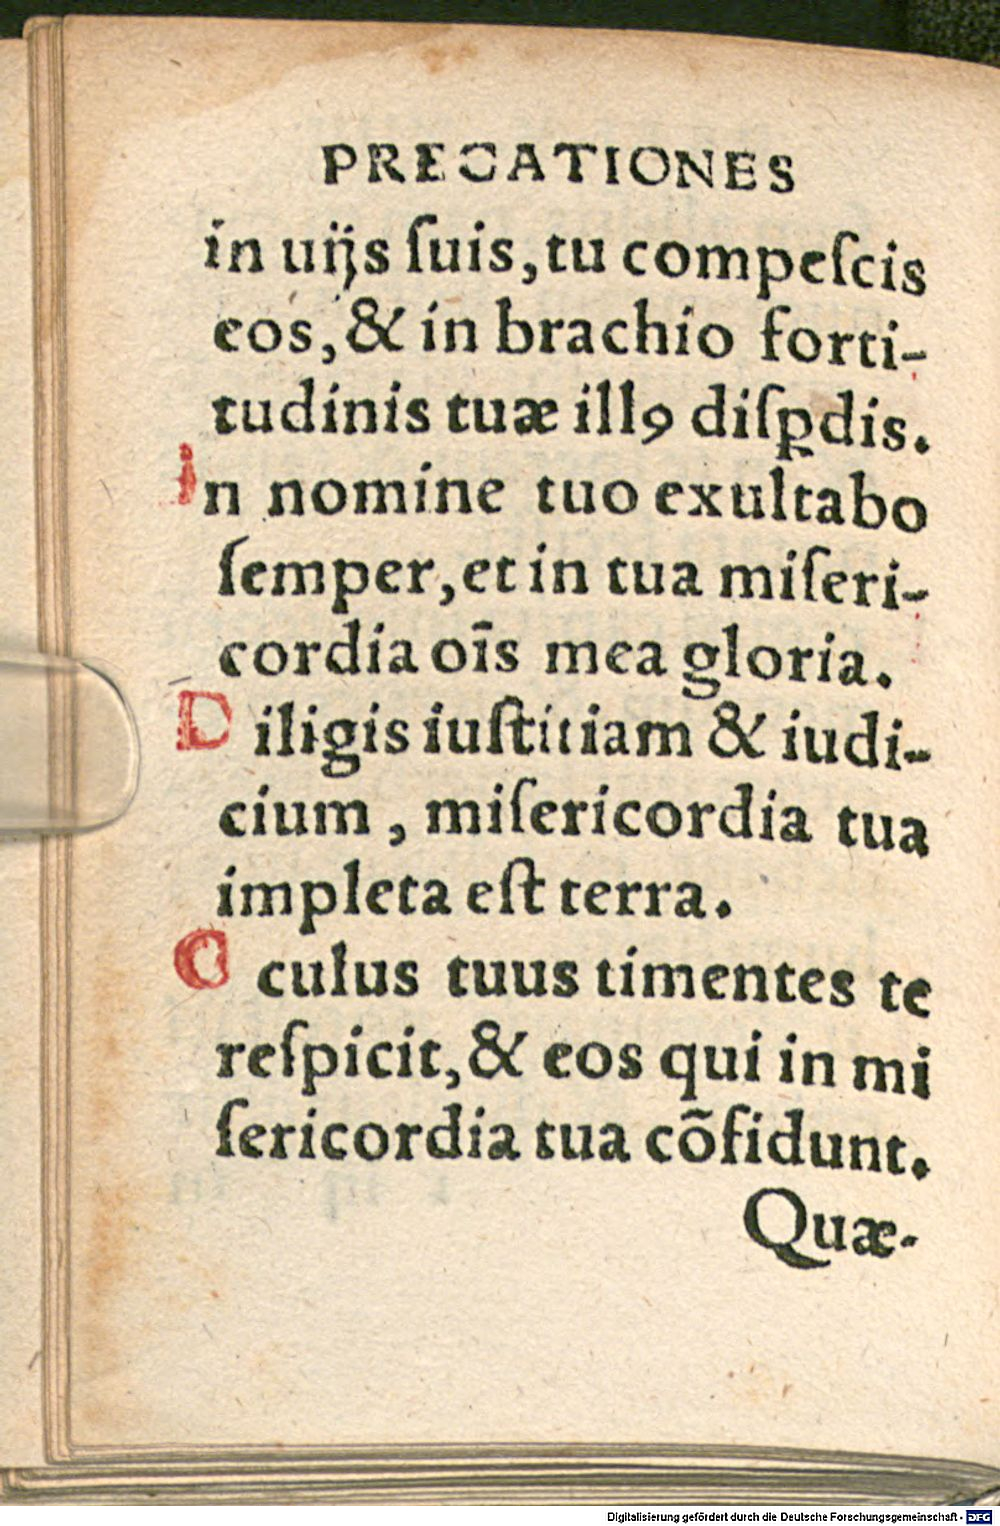 PRECATIONES
in uijs ſuis, tu compeſcis
eos, & in brachio forti-
tudinis tuæ illꝯ diſꝑdis.
In nomine tuo exultabo
ſemper, et in tua miſeri-
cordia oīs mea gloria.
Diligis iuſtitiam & iudi-
cium, miſericordia tua
impleta eſt terra.
Oculus tuus timentes te
reſpicit, & eos qui in mi
ſericordia tua cõfidunt.
Quæ-
Digitalisierung gefördert durch die Deutsche Forschungsgemeinschaft - DFG